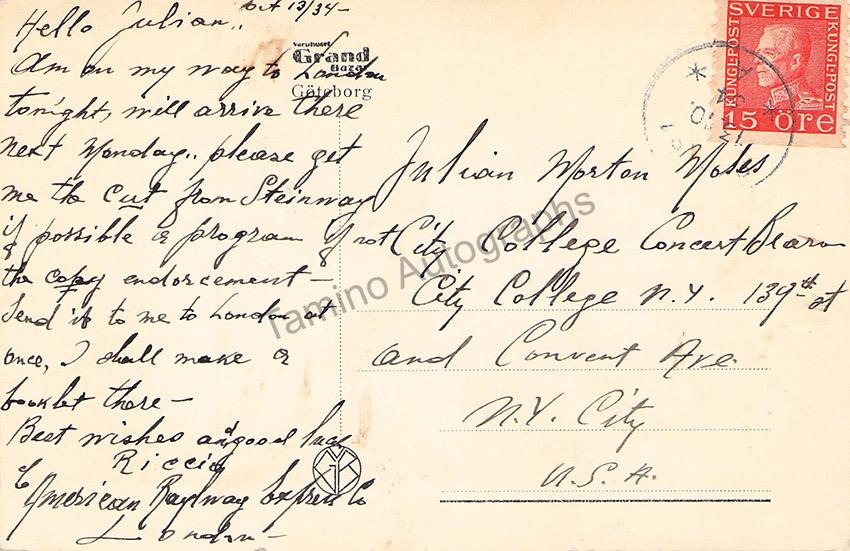 Oct 13/34-
Hello Julian,,
Am on my way to London
tonight, will arrive there
next Monday,, please get
me the cut from Steinway
if possible a program if not
the copy endorcement -
Send it to me to London at
once, I shall make a
booklet there -
Best wishes and good luck
Riccio
c/o American Raylway Express Co
London -
Varuhuset
Grand
Bazar
Göteborg
SVERIGE
KUNGL-POST
KUNGL-POST
15 ÖRE
Julian Morton Moses
City College Concert Bearo
City College N.Y. 139th st
and Convent Ave.
N.Y. City
U.S.A.
Tamino Autographs